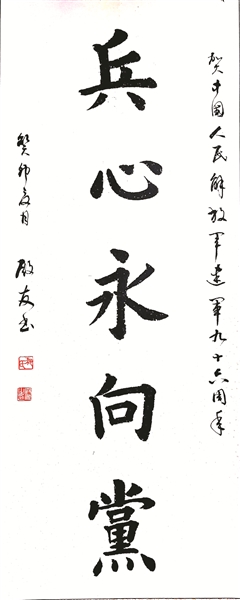 贺中国人民解放军建军九十六周年
兵心永向黨
癸卯夏月 友书